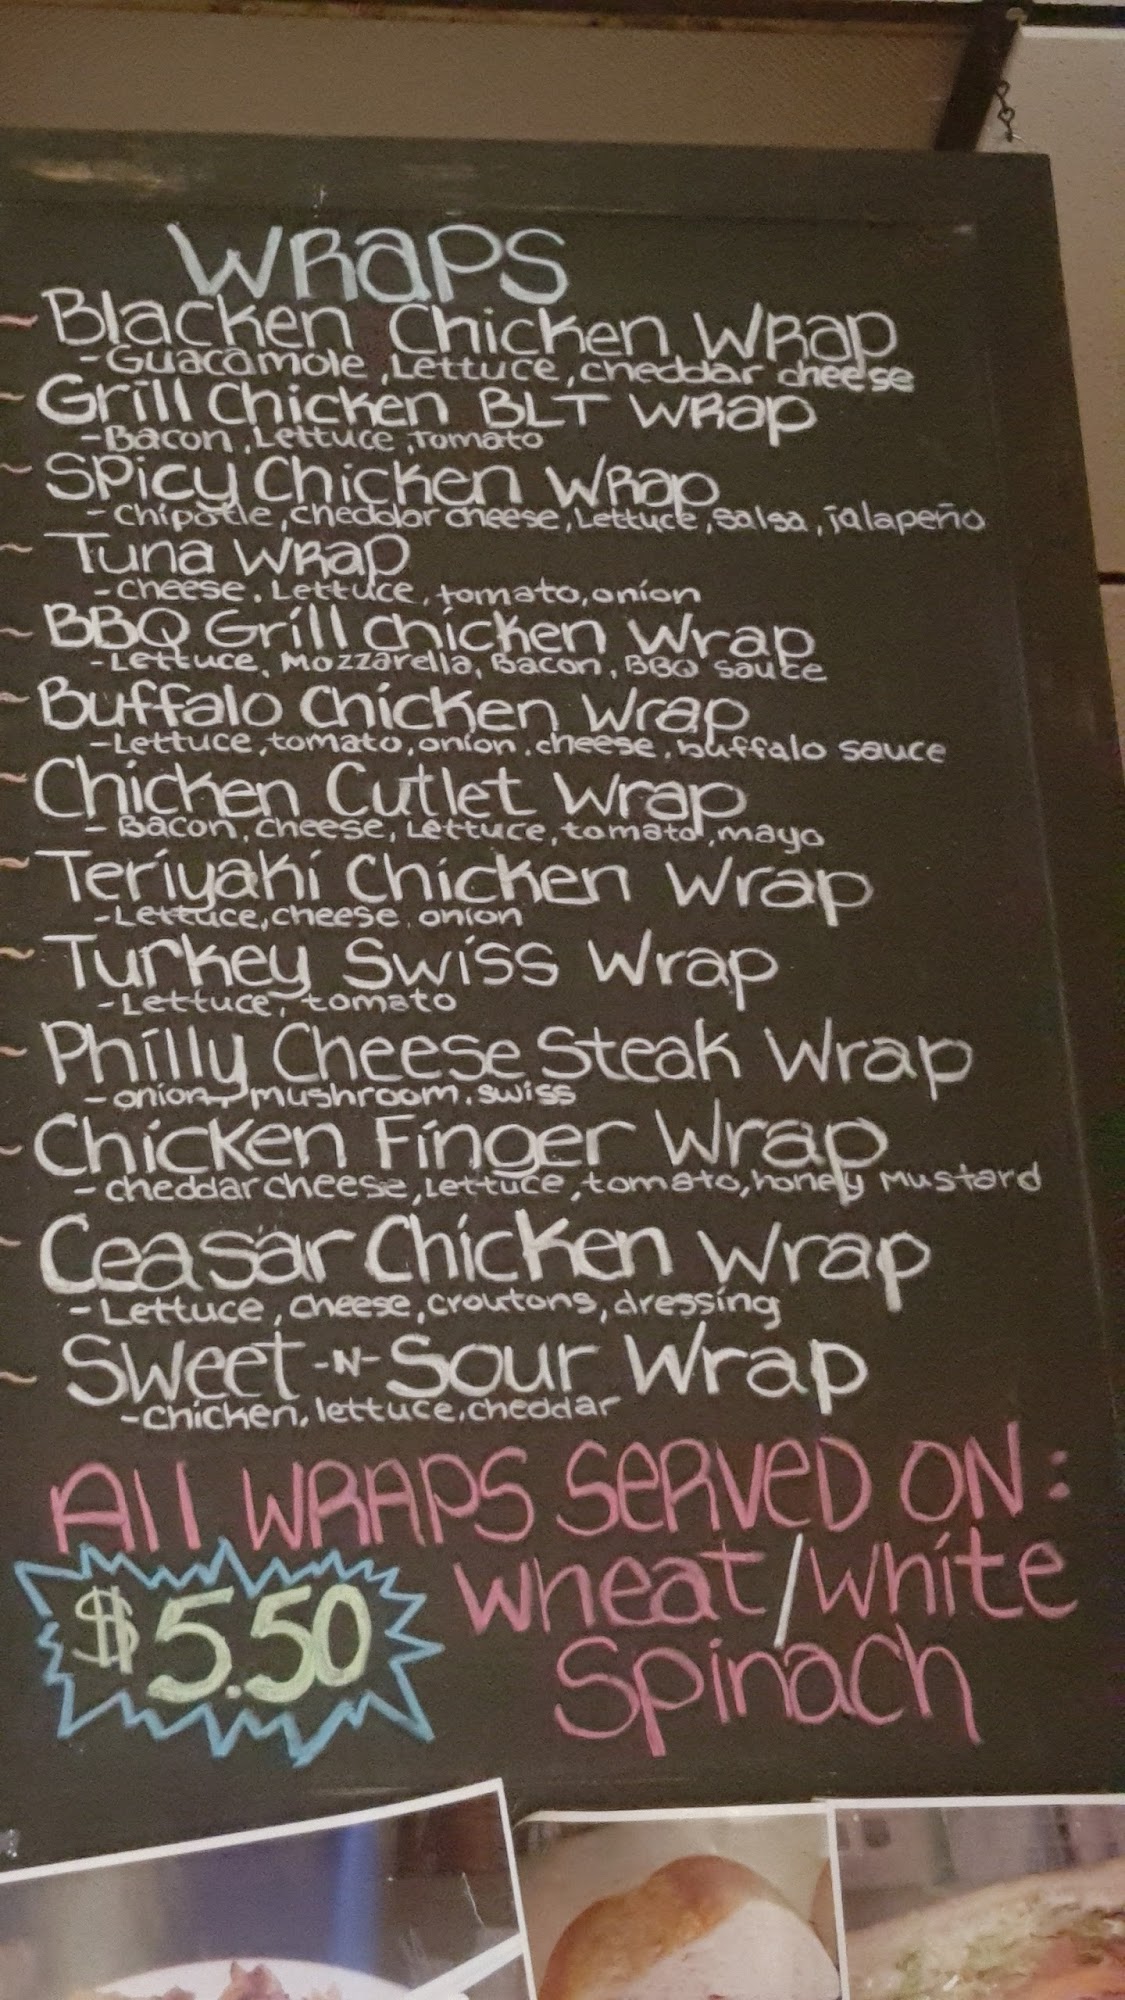 WRaPS
Blacken Chicken WRap
- Guacamole, Lettuce, cheddar cheese
Grill Chicken BLT WRap
- Bacon, Lettuce, Tomato
Spicy Chicken WRap
- Chipotle, cheddar cheese, Lettuce, salsa, jalapeño
Tuna WRap
- cheese, Lettuce, tomato, onion
BBQ Grill chicken Wrap
- Lettuce, Mozzarella, Bacon, BBQ sauce
Buffalo Chicken Wrap
- Lettuce, tomato, onion, cheese, buffalo sauce
Chicken Cutlet Wrap
- Bacon, cheese, Lettuce, tomato, mayo
Teriyaki Chicken Wrap
- Lettuce, cheese, onion
Turkey Swiss Wrap
- Lettuce, tomato
Philly Cheese Steak Wrap
- onion, mushroom, swiss
Chicken Finger Wrap
- cheddar cheese, lettuce, tomato, honey Mustard
Ceasar Chicken Wrap
- Lettuce, cheese, croutons, dressing
Sweet -N- Sour Wrap
- Chicken, lettuce, cheddar
All WRAPS SeRVeD ON:
wheat/white
Spinach
$5.50